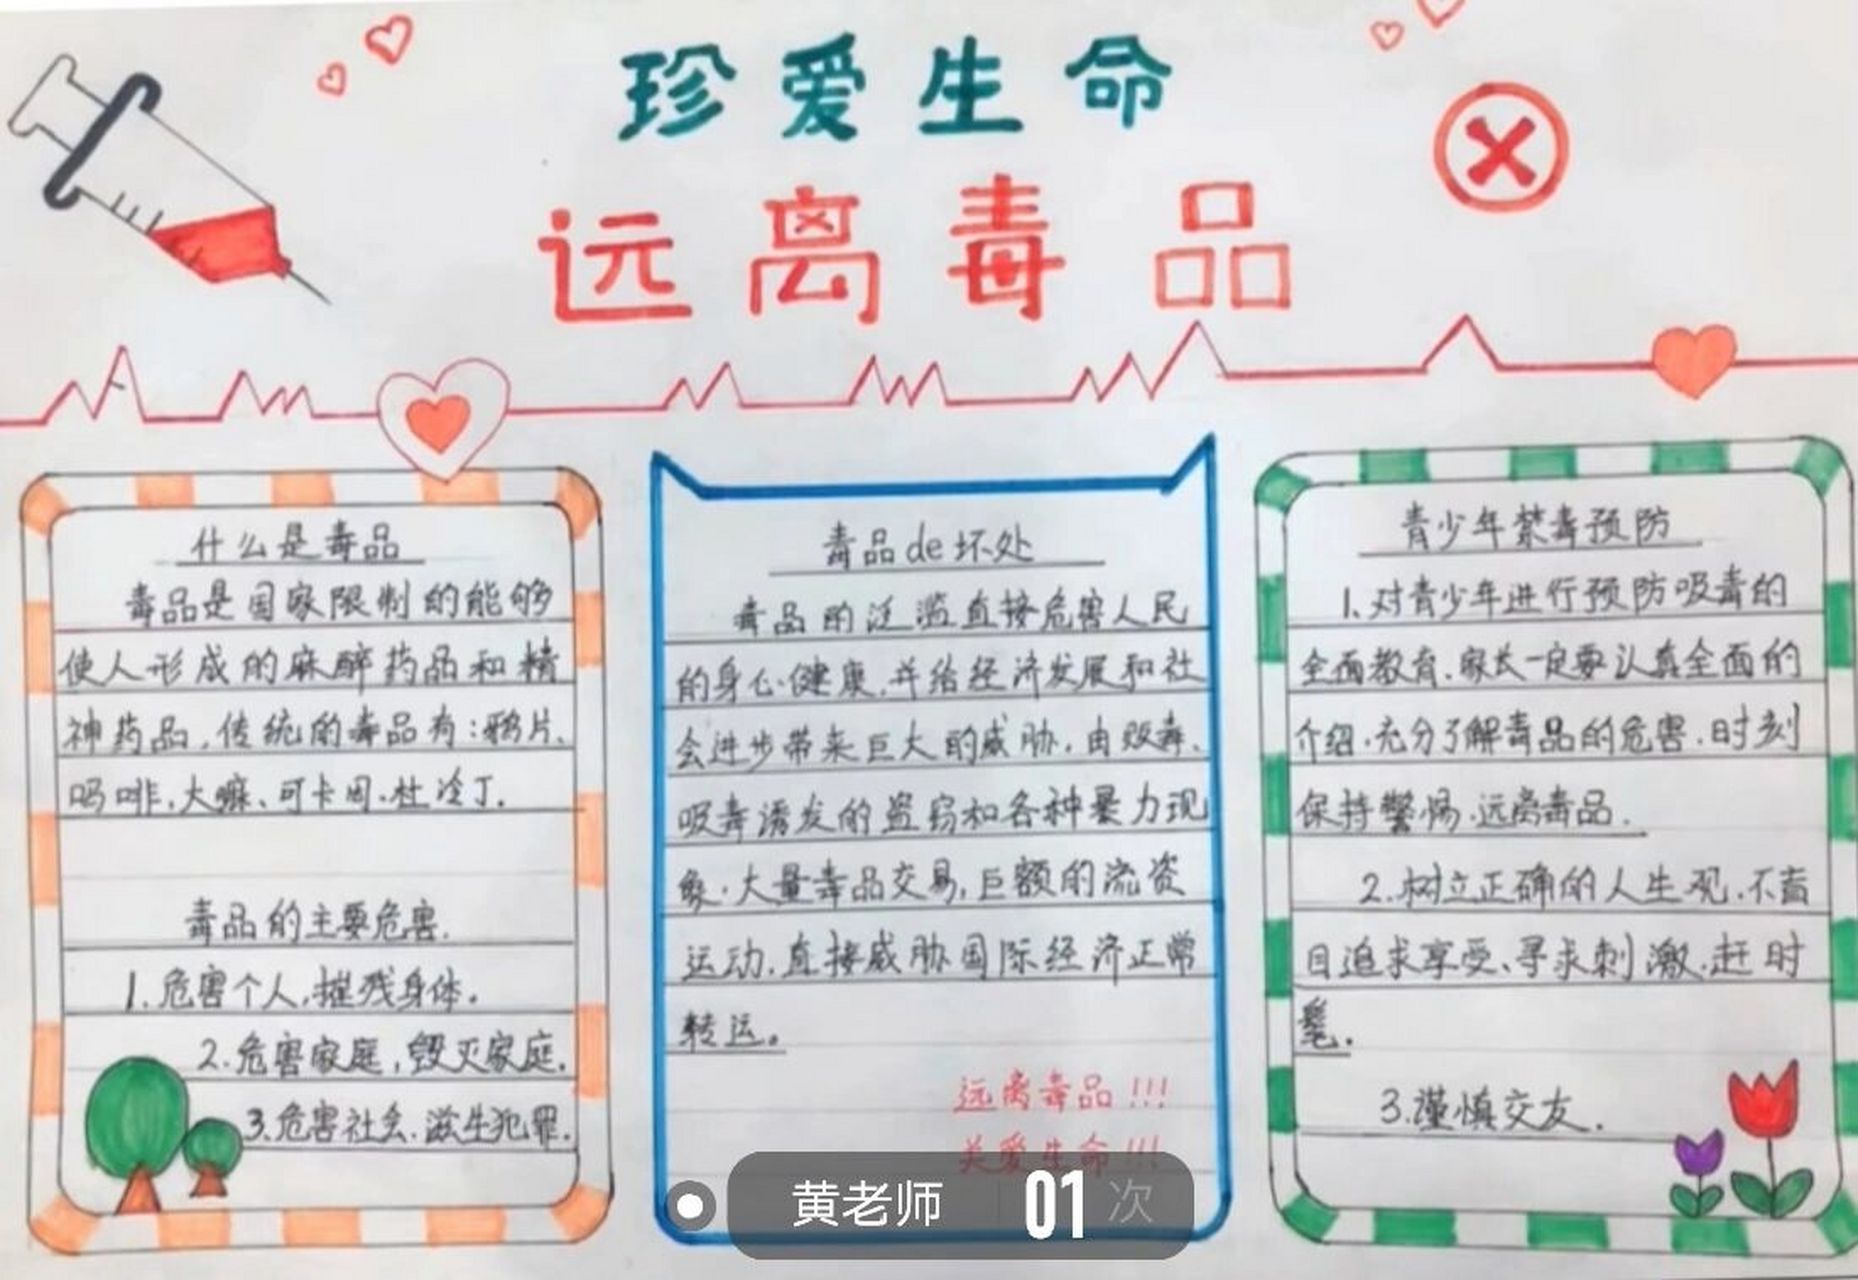 珍爱生命
远离毒品
什么是毒品
毒品是国家限制的能够
使人形成的麻醉药品和精
神药品,传统的毒品有:鸦片、
吗啡,大嘛、可卡因、杜冷丁.
毒品的主要危害.
1.危害个人,摧残身体.
2.危害家庭,毁灭家庭.
3.危害社会.滋生犯罪.
毒品de坏处
毒品的泛滥直接危害人民
的身心健康,并给经济发展和社
会进步带来巨大的威胁,由贩毒、
吸毒诱发的盗窃和各种暴力现
象.大量毒品交易,巨额的流资
运动,直接威胁国际经济正常
转运。
远离毒品!!!
关爱生命!!!
青少年禁毒预防
1.对青少年进行预防吸毒的
全面教育.家长一定要认真全面的
介绍.充分了解毒品的危害.时刻
保持警惕.远离毒品.
2.树立正确的人生观.不盲
目追求享受、寻求刺激.赶时
髦.
3.谨慎交友.
黄老师 01次